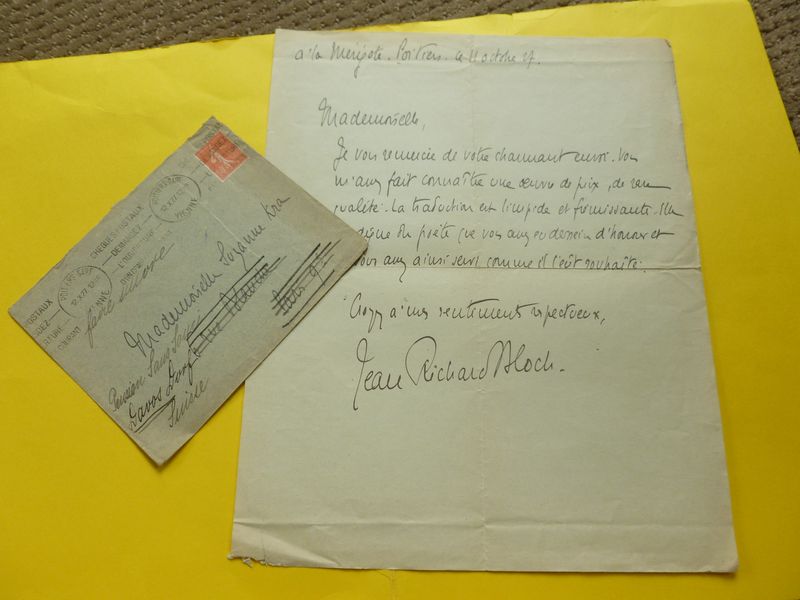 à la Mérigote. Poitiers. le 11 octobre 27.
Mademoiselle,
Je vous remercie de votre charmant envoi. Vous
m'avez fait connaître une œuvre de prix, de rare
qualité. La traduction est limpide et frémissante. Elle
digne du poète que vous avez eu dessein d'honorer et
vous avez ainsi servi comme il l'eût souhaité.
Croyez à mes sentiments respectueux,
Jean Richard Bloch.
CHEQUES POSTAUX
DEMANDEZ
L'OUVERTURE
POITIERS GARE
12 X 27
VIENNE
faire suivre
Mademoiselle Suzanne Kra
Paris 9e
Pension Sans Souci
Davos Dorf
Suisse